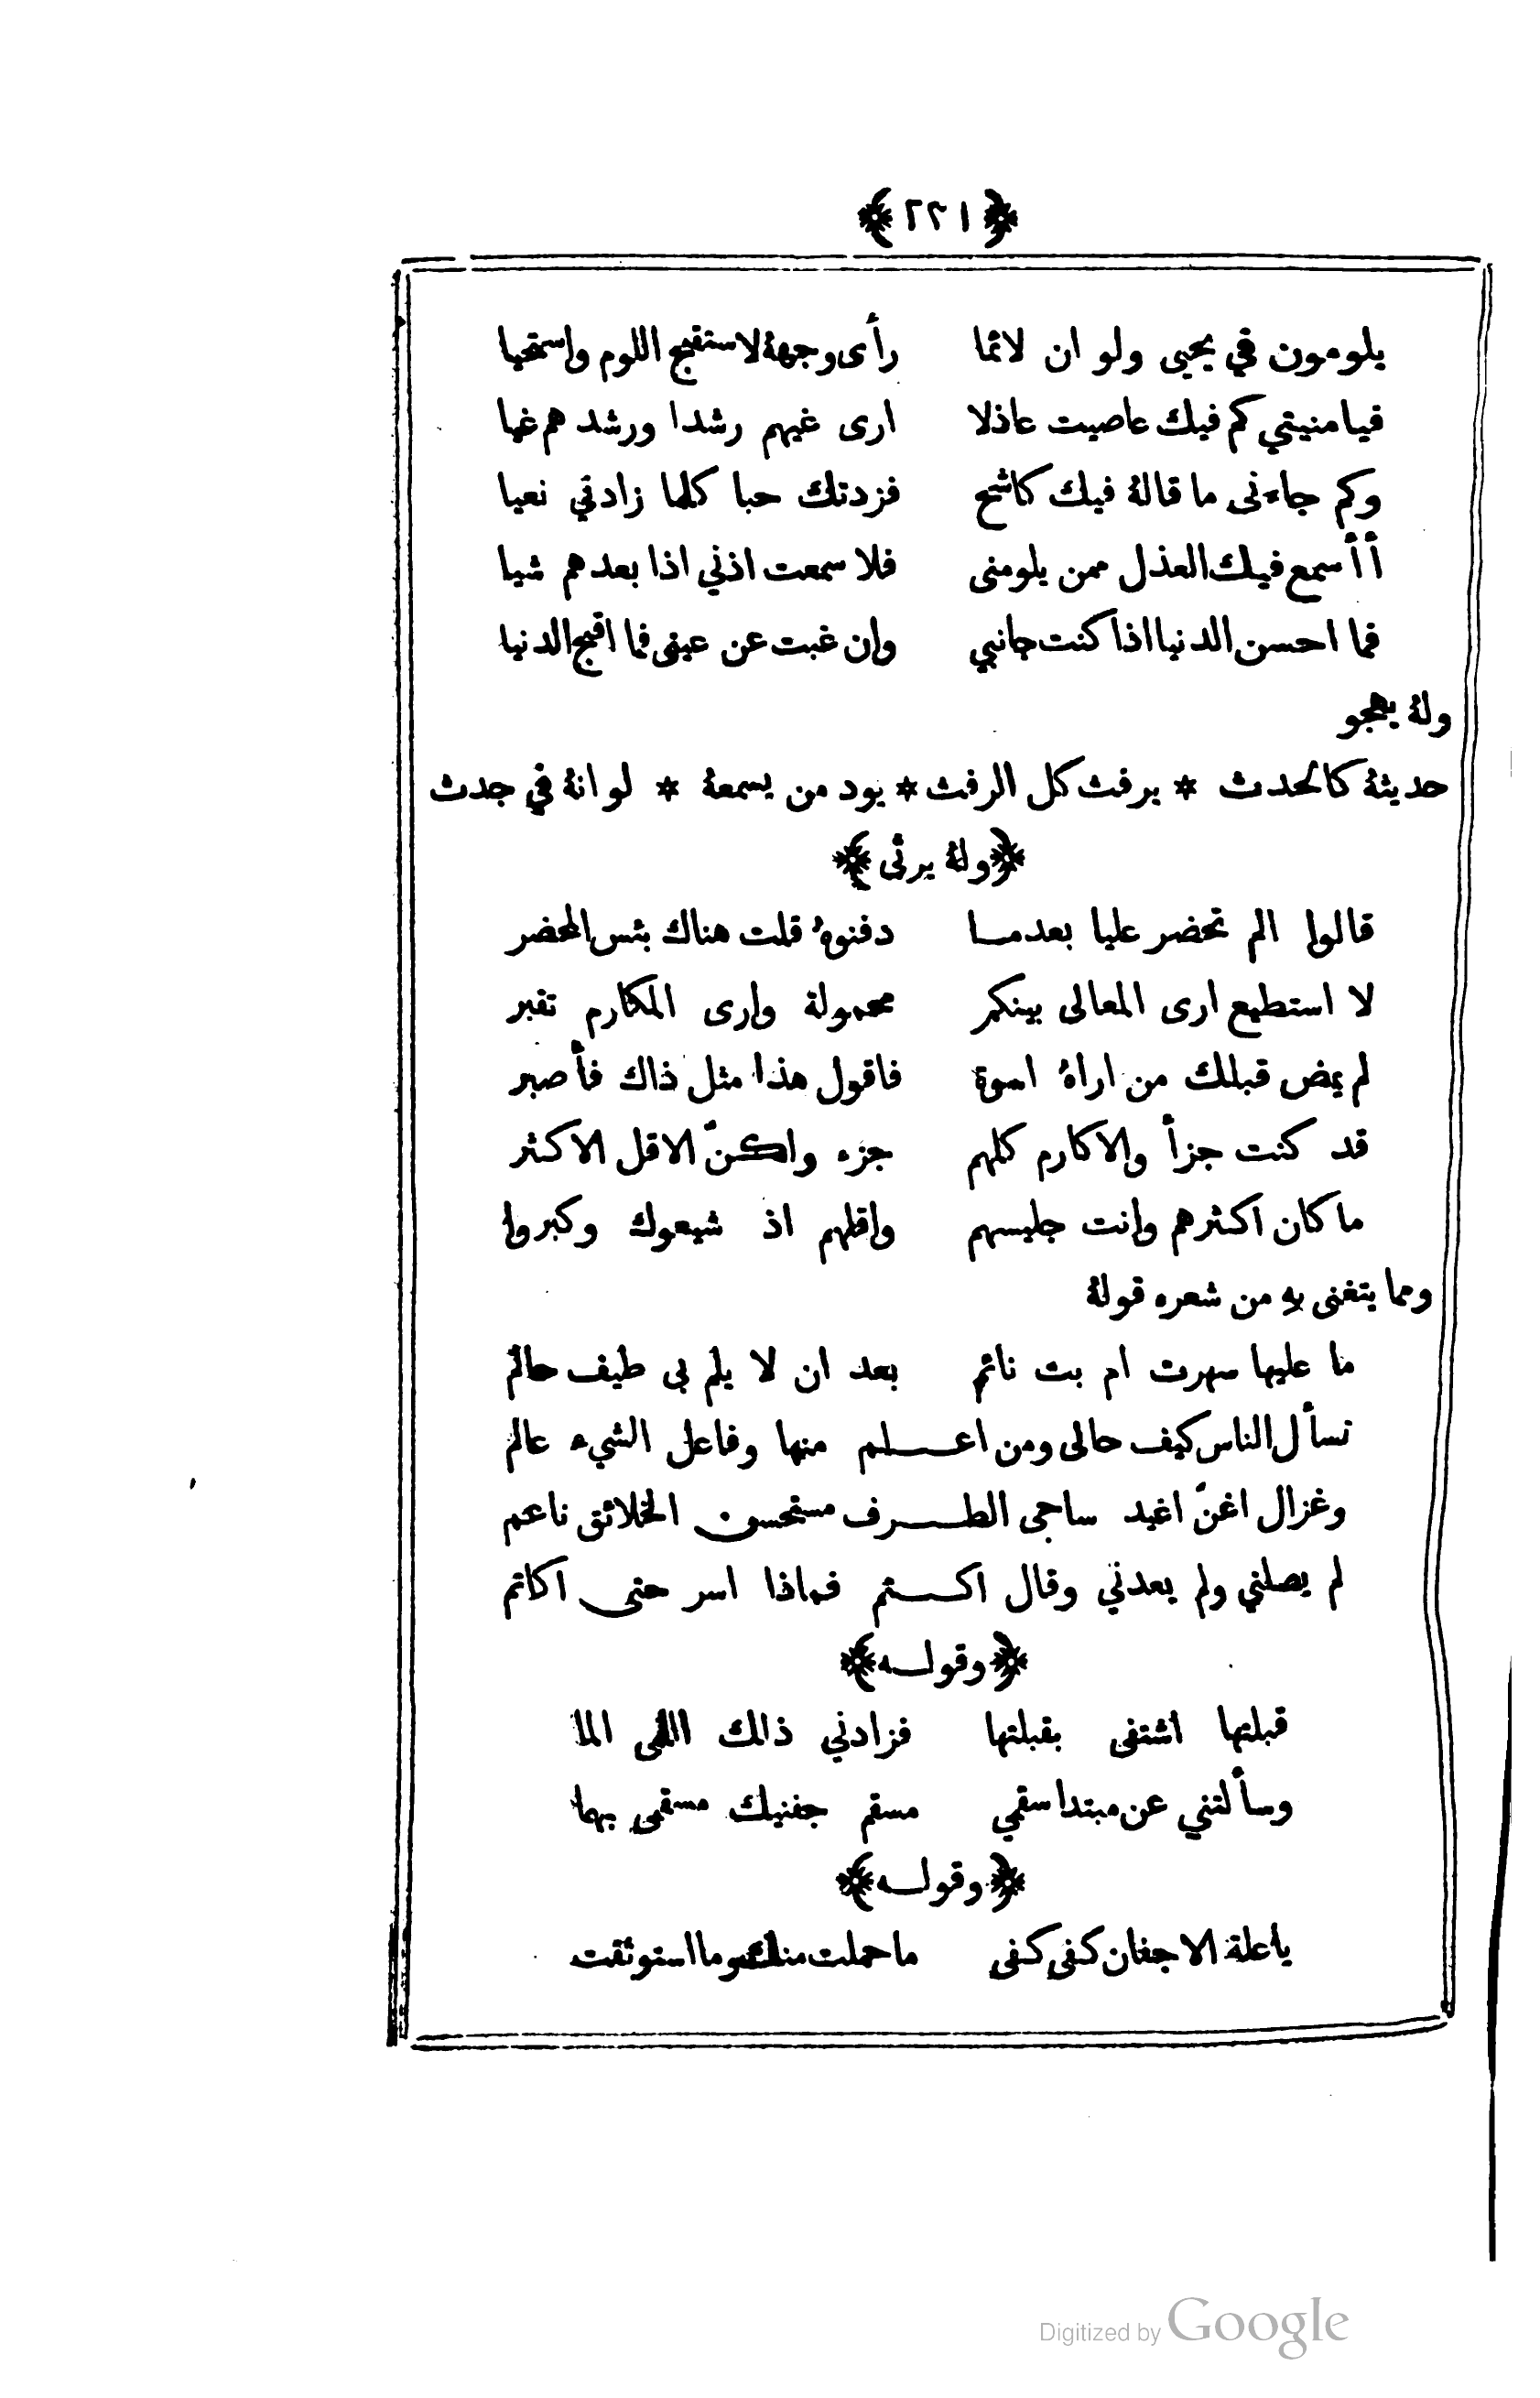 ﴿٢٢١﴾
يلومون في يحيى ولو ان لائما رأى وجههٔ لاستقبح اللوم واستحيا
فيا منيتي كم فيك عاصيت عاذلا ارى غيهم رشدا ورشد هم غيا
وكم جاءنى ما قالهٔ فيك كاشح فزدتك حبا كلما زادني نعيا
أأسمع فيك العذل ممن يلومنى فلا سمعت اذني اذا بعدهم شيا
فما احسن الدنيا اذا كنت جانبي وان غبت عن عينى فما اقبح الدنيا
ولهٔ يهجو
حديثهٔ كالحدث * يرفث كل الرفث * يود من يسمعهٔ * لو انهٔ في جدث
﴿ولهٔ يرثى﴾
قالوا الم تحضر عليا بعدما دفنوهٔ قلت هناك بئس المحضر
لا استطيع ارى المعالى بينكم محمولة وارى المكارم تقبر
لم يمض قبلك من اراهٔ اسوة فاقول هذا مثل ذاك فأصبر
قد كنت جزأ والاكارم كلهم جزء ولكنّ الاقل الاكثر
ما كان اكثرهم وانت جليسهم واقلهم اذ شيعوك وكبروا
ومما يتغنى به من شعره قولهٔ
ما عليها سهرت ام بت نائم بعد ان لا يلم بى طيف حالم
تسأل الناس كيف حالى ومن اعلم منها وفاعل الشيء عالم
وغزال اغنّ اغيد ساجى الطرف مستحسن الخلائق ناعم
لم يصلني ولم يعدني وقال اكتم فماذا اسر حتى اكاتم
﴿وقوله﴾
قبلتها اشتفى بقبلتها فزادني ذالك اللمى الما
وسألتني عن مبتدا سقمي مسقم جفنيك مسقمى بهما
﴿وقوله﴾
يا علة الاجفان كفى كفى ما حملت منك وما استوثقت
Digitized by Google